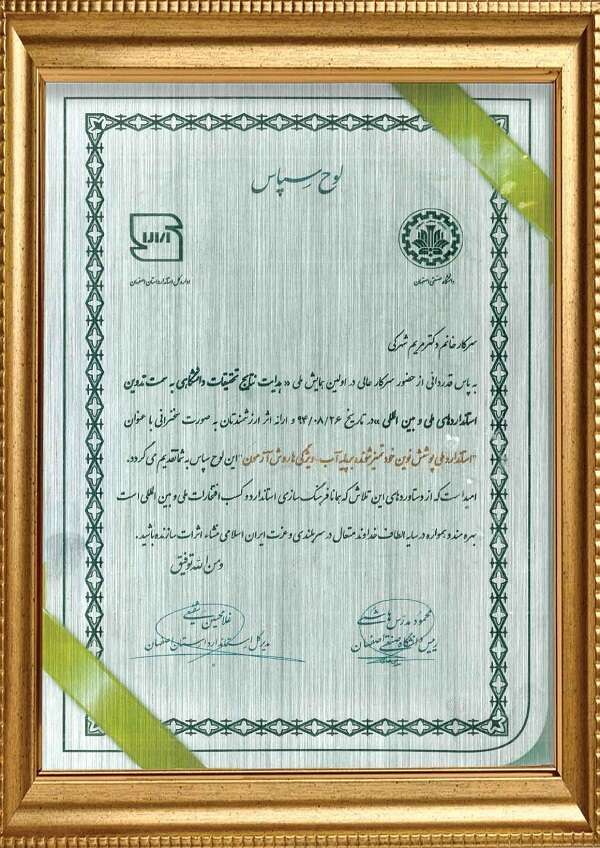 لوح سپاس
دانشگاه صنعتی اصفهان
اداره کل استاندارد استان اصفهان
سرکار خانم دکتر مریم شهرکی
به پاس قدردانی از حضور سرکار عالی در اولین همایش ملی « هدایت نتایج تحقیقات دانشگاهی به سمت تدوین
استانداردهای ملی و بین المللی » در تاریخ ۹۴/۰۸/۲۶ و ارائه اثر ارزشمندتان به صورت سخنرانی با عنوان
"استاندارد ملی پوشش نوین خود تمیز شونده بر پایه آب - ویژگی ها و روش آزمون" این لوح سپاس به شما تقدیم می گردد.
امید است که از دستاوردهای این تلاش که همانا فرهنگ سازی استاندارد و کسب افتخارات ملی و بین المللی است
بهره مند و همواره در سایه الطاف خداوند متعال در سربلندی و عزت ایران اسلامی منشاء اثرات سازنده باشید.
ومن الله توفیق
محمود مدرس هاشمی
رییس دانشگاه صنعتی اصفهان
غلامحسین شفیعی
مدیرکل استاندارد استان اصفهان